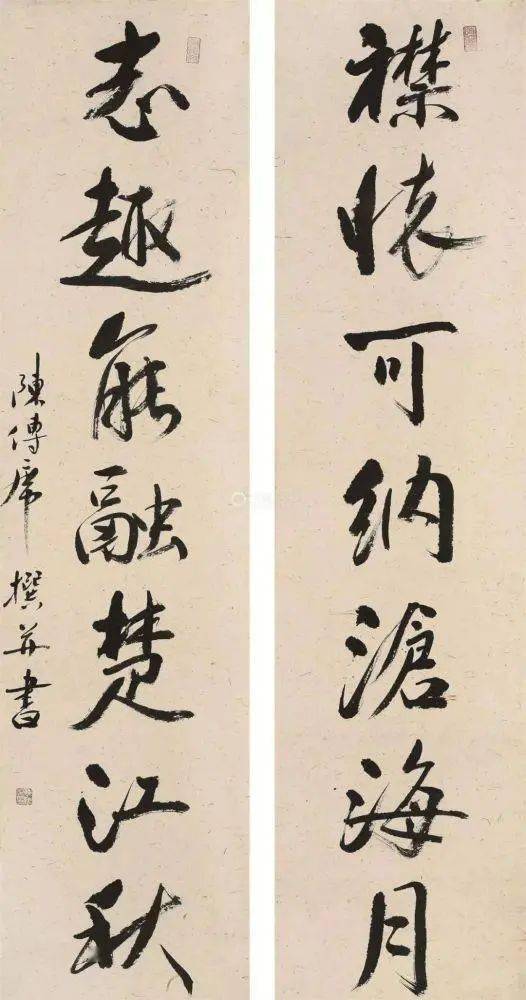 襟懐可納滄海月
志趣能融楚江秋
陳傳席撰并書